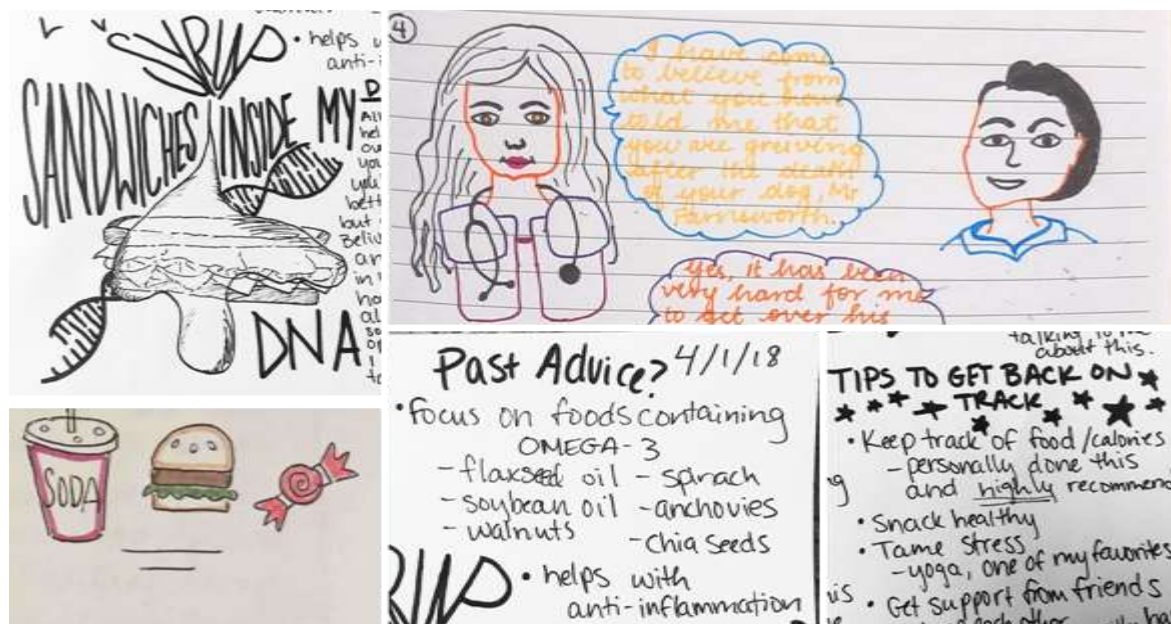 SANDWICHES INSIDE MY
DNA
• helps
anti-
4
I have come
to believe from
what you have
told me that
you are greiving
after the death
of your dog, Mr
Farnsworth.
yes, it has been
very hard for me
to get over his
SODA
Past Advice? 4/1/18
• Focus on foods containing
OMEGA-3
- flaxseed oil - spinach
- soybean oil - anchovies
- walnuts - chia seeds
• helps with
anti-inflammation
talking to me
about this.
TIPS TO GET BACK ON
TRACK
• Keep track of food/calories
- personally done this
and highly recommend
• Snack healthy
• Tame stress
- yoga, one of my favorites
• Get support from friends